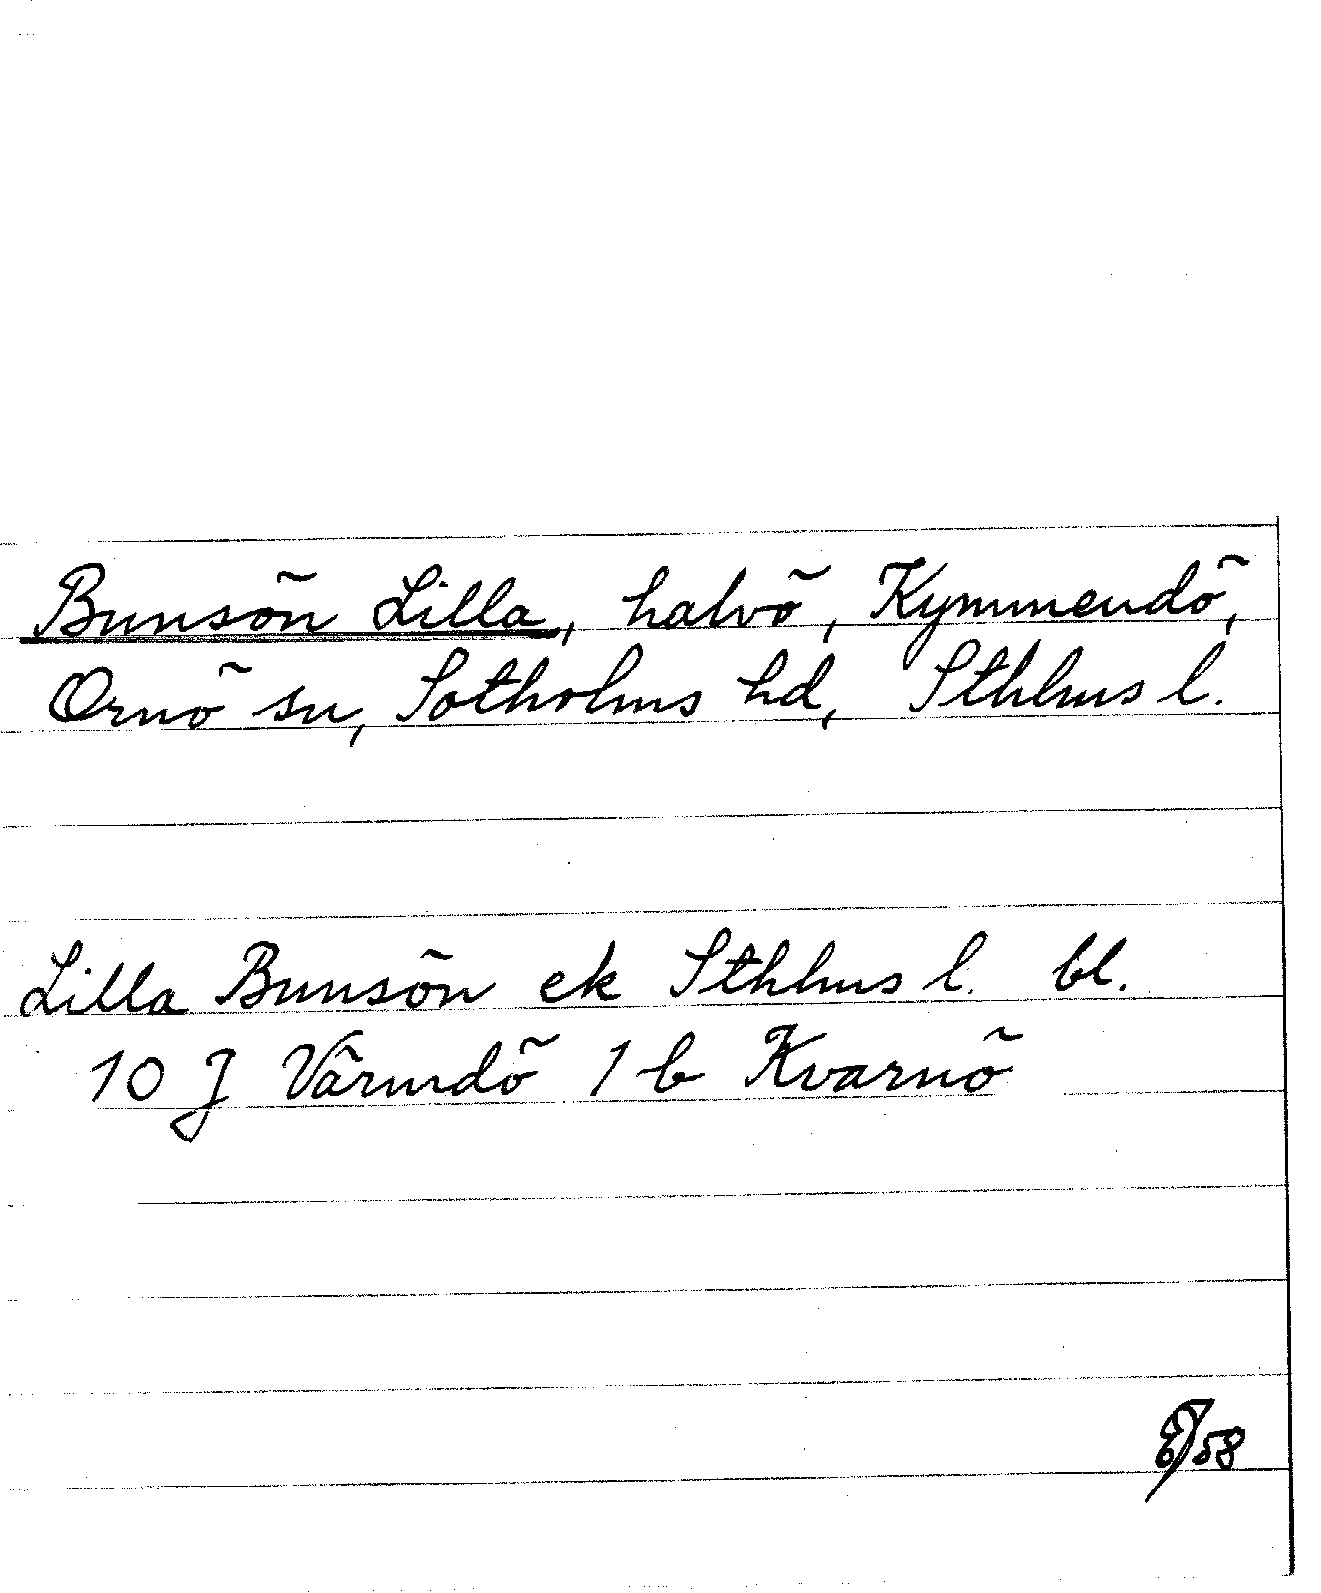 Bunsön Lilla, halvö, Kymmendö,
Ornö sn, Sotholms hd, Sthlms l.
Lilla Bunsön ek Sthlms l. bl.
10 J Värmdö 1 b Kvarnö
58